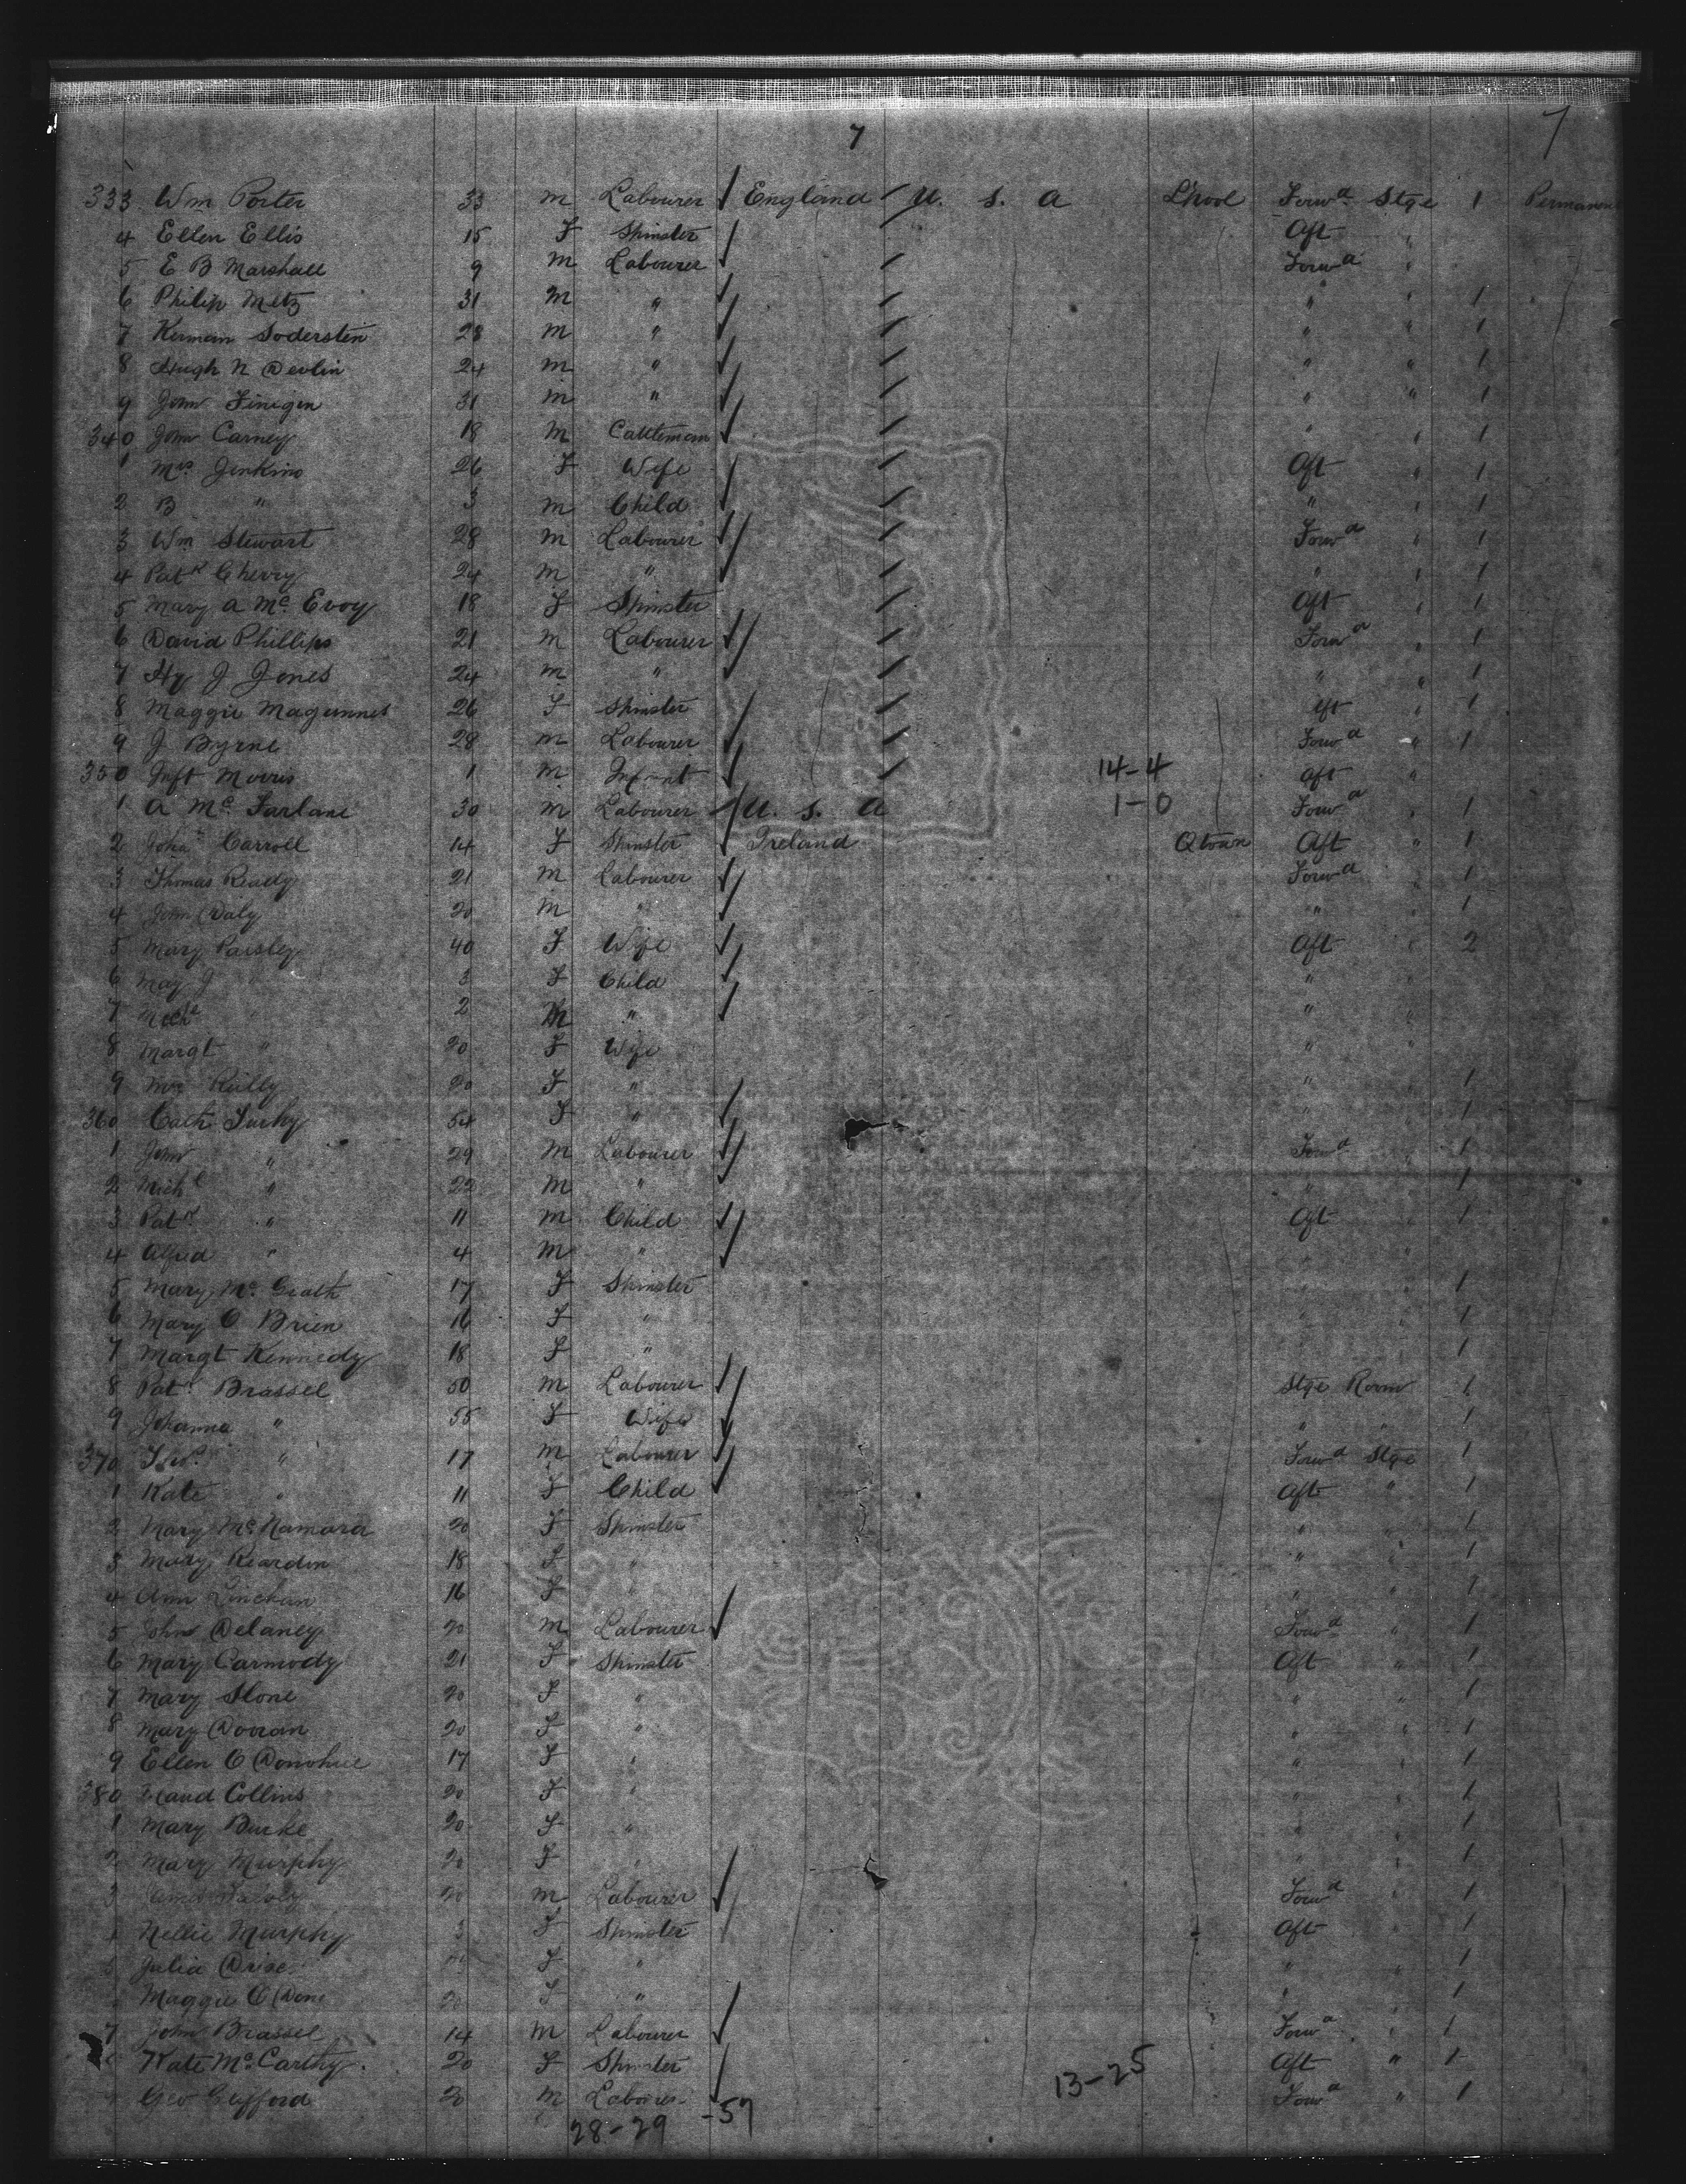 7 7
333 Wm Porter 33 m Labourer England U. S. A L'pool Forwd Stge 1 Permanent
4 Ellen Ellis 15 F Spinster Aft "
5 E B Marshall 9 m Labourer Forwd "
6 Philip Metz 31 m " " " 1
7 Herman Soderstein 28 m " " " 1
8 Hugh N Devlin 24 m " " " 1
9 John Finigen 31 m " " " 1
340 John Carney 18 m Cattleman " " 1
1 Mrs Jenkins 26 F Wife Aft " 1
2 B " 3 m Child " " 1
3 Wm Stewart 28 m Labourer Forwd " 1
4 Patk Cherry 24 m " " " 1
5 Mary A Mc Evoy 18 F Spinster Aft " 1
6 David Phillips 21 m Labourer Forwd " 1
7 Hy J Jones 24 m " " " 1
8 Maggie Magennis 26 F Spinster Aft " 1
9 J Byrne 28 m Labourer Forwd " 1
350 Inft Morris 1 m Infant 14-4 Aft "
1 A Mc Farlane 30 m Labourer U. S. A 1-0 Forwd " 1
2 Johan Carroll 14 F Spinster Ireland Qtown Aft " 1
3 Thomas Ready 21 m Labourer Forwd " 1
4 John Daly 20 m " " " 1
5 Mary Paisley 40 F Wife Aft " 2
6 May J 3 F Child " "
7 2 M " " "
8 Margt " 20 F Wife " "
9 Mrs Reilly 20 F " " " 1
360 Cath Tuohy 54 F " " " 1
1 John " 29 m Labourer Forwd " 1
2 Michl " 22 m " " 1
3 Patk " 11 m Child Aft " 1
4 Alfred " 4 m " " "
5 Mary Mc Grath 17 F Spinster " " 1
6 Mary O Brien 16 F " " " 1
7 Margt Kennedy 18 F " " " 1
8 Patk Brassel 50 m Labourer Stge Room 1
9 Johanna " 55 F Wife " " 1
370 Thos " 17 m Labourer Forwd Stge 1
1 Kate " 11 F Child Aft " 1
2 Mary Mc Namara 20 F Spinster " " 1
3 Mary Reardon 18 F " " " 1
4 Ann Linehan 16 F " " " 1
5 John Delaney 20 m Labourer Forwd " 1
6 Mary Carmody 21 F Spinster Aft " 1
7 Mary Slone 20 F " " " 1
8 Mary Dooran 20 F " " " 1
9 Ellen O Donohue 17 F " " " 1
380 Maud Collins 20 F " " " 1
1 Mary Burke 20 F " " " 1
2 Mary Murphy 20 F " " " 1
3 20 m Labourer Forwd " 1
Nellie Murphy 3 F Spinster Aft " 1
Julia F " " " 1
Maggie O 20 F " " " 1
7 John Brassel 14 m Labourer Forwd " 1
Kate Mc Carthy 20 F Spinster Aft " 1
Geo Gifford 20 m Labourer 13-25 Forwd " 1
28-29 -57